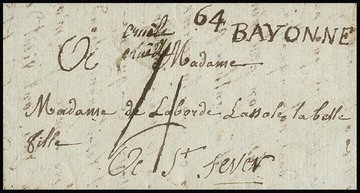 64
BAYONNE
A Madame
Madame de Laborde Lassale la belle
fille
A St sever